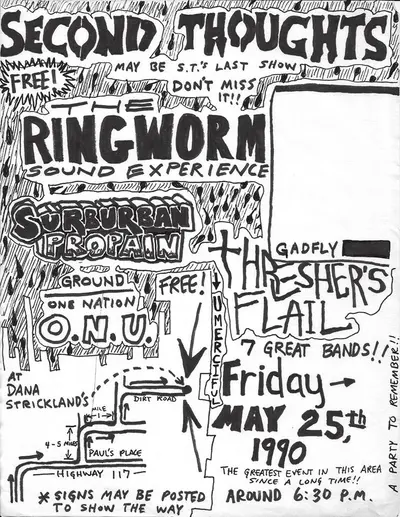 SECOND THOUGHTS
MAY BE S.T.'S LAST SHOW
FREE!
DON'T MISS
IT!!
THE
RINGWORM
SOUND EXPERIENCE
SURBURBAN
PROPAIN
GADFLY
THRESHER'S
FLAIL
GROUND
ONE NATION
O.N.U.
FREE!
UNMERCIFUL
7 GREAT BANDS!!
AT
DANA
STRICKLAND'S
DIRT ROAD
MILE
1
4-5 MILES
PAUL'S PLACE
HIGHWAY 117
* SIGNS MAY BE POSTED
TO SHOW THE WAY
Friday
MAY 25th,
1990
THE GREATEST EVENT IN THIS AREA
SINCE A LONG TIME!!
AROUND 6:30 P.M.
A PARTY TO REMEMBER!!